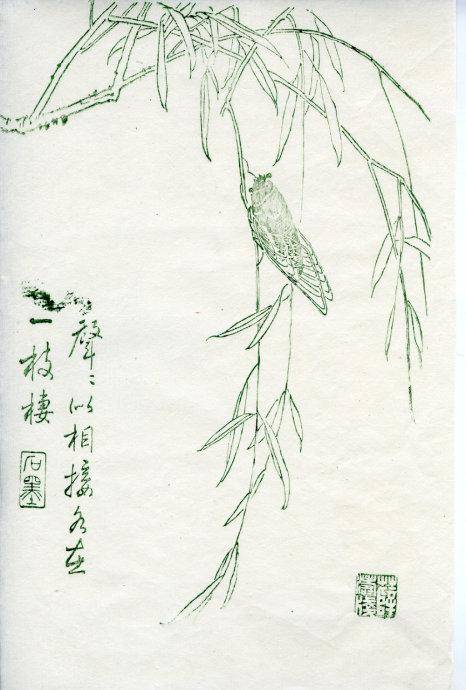 聲〻似相接各在
一枝棲
石墨